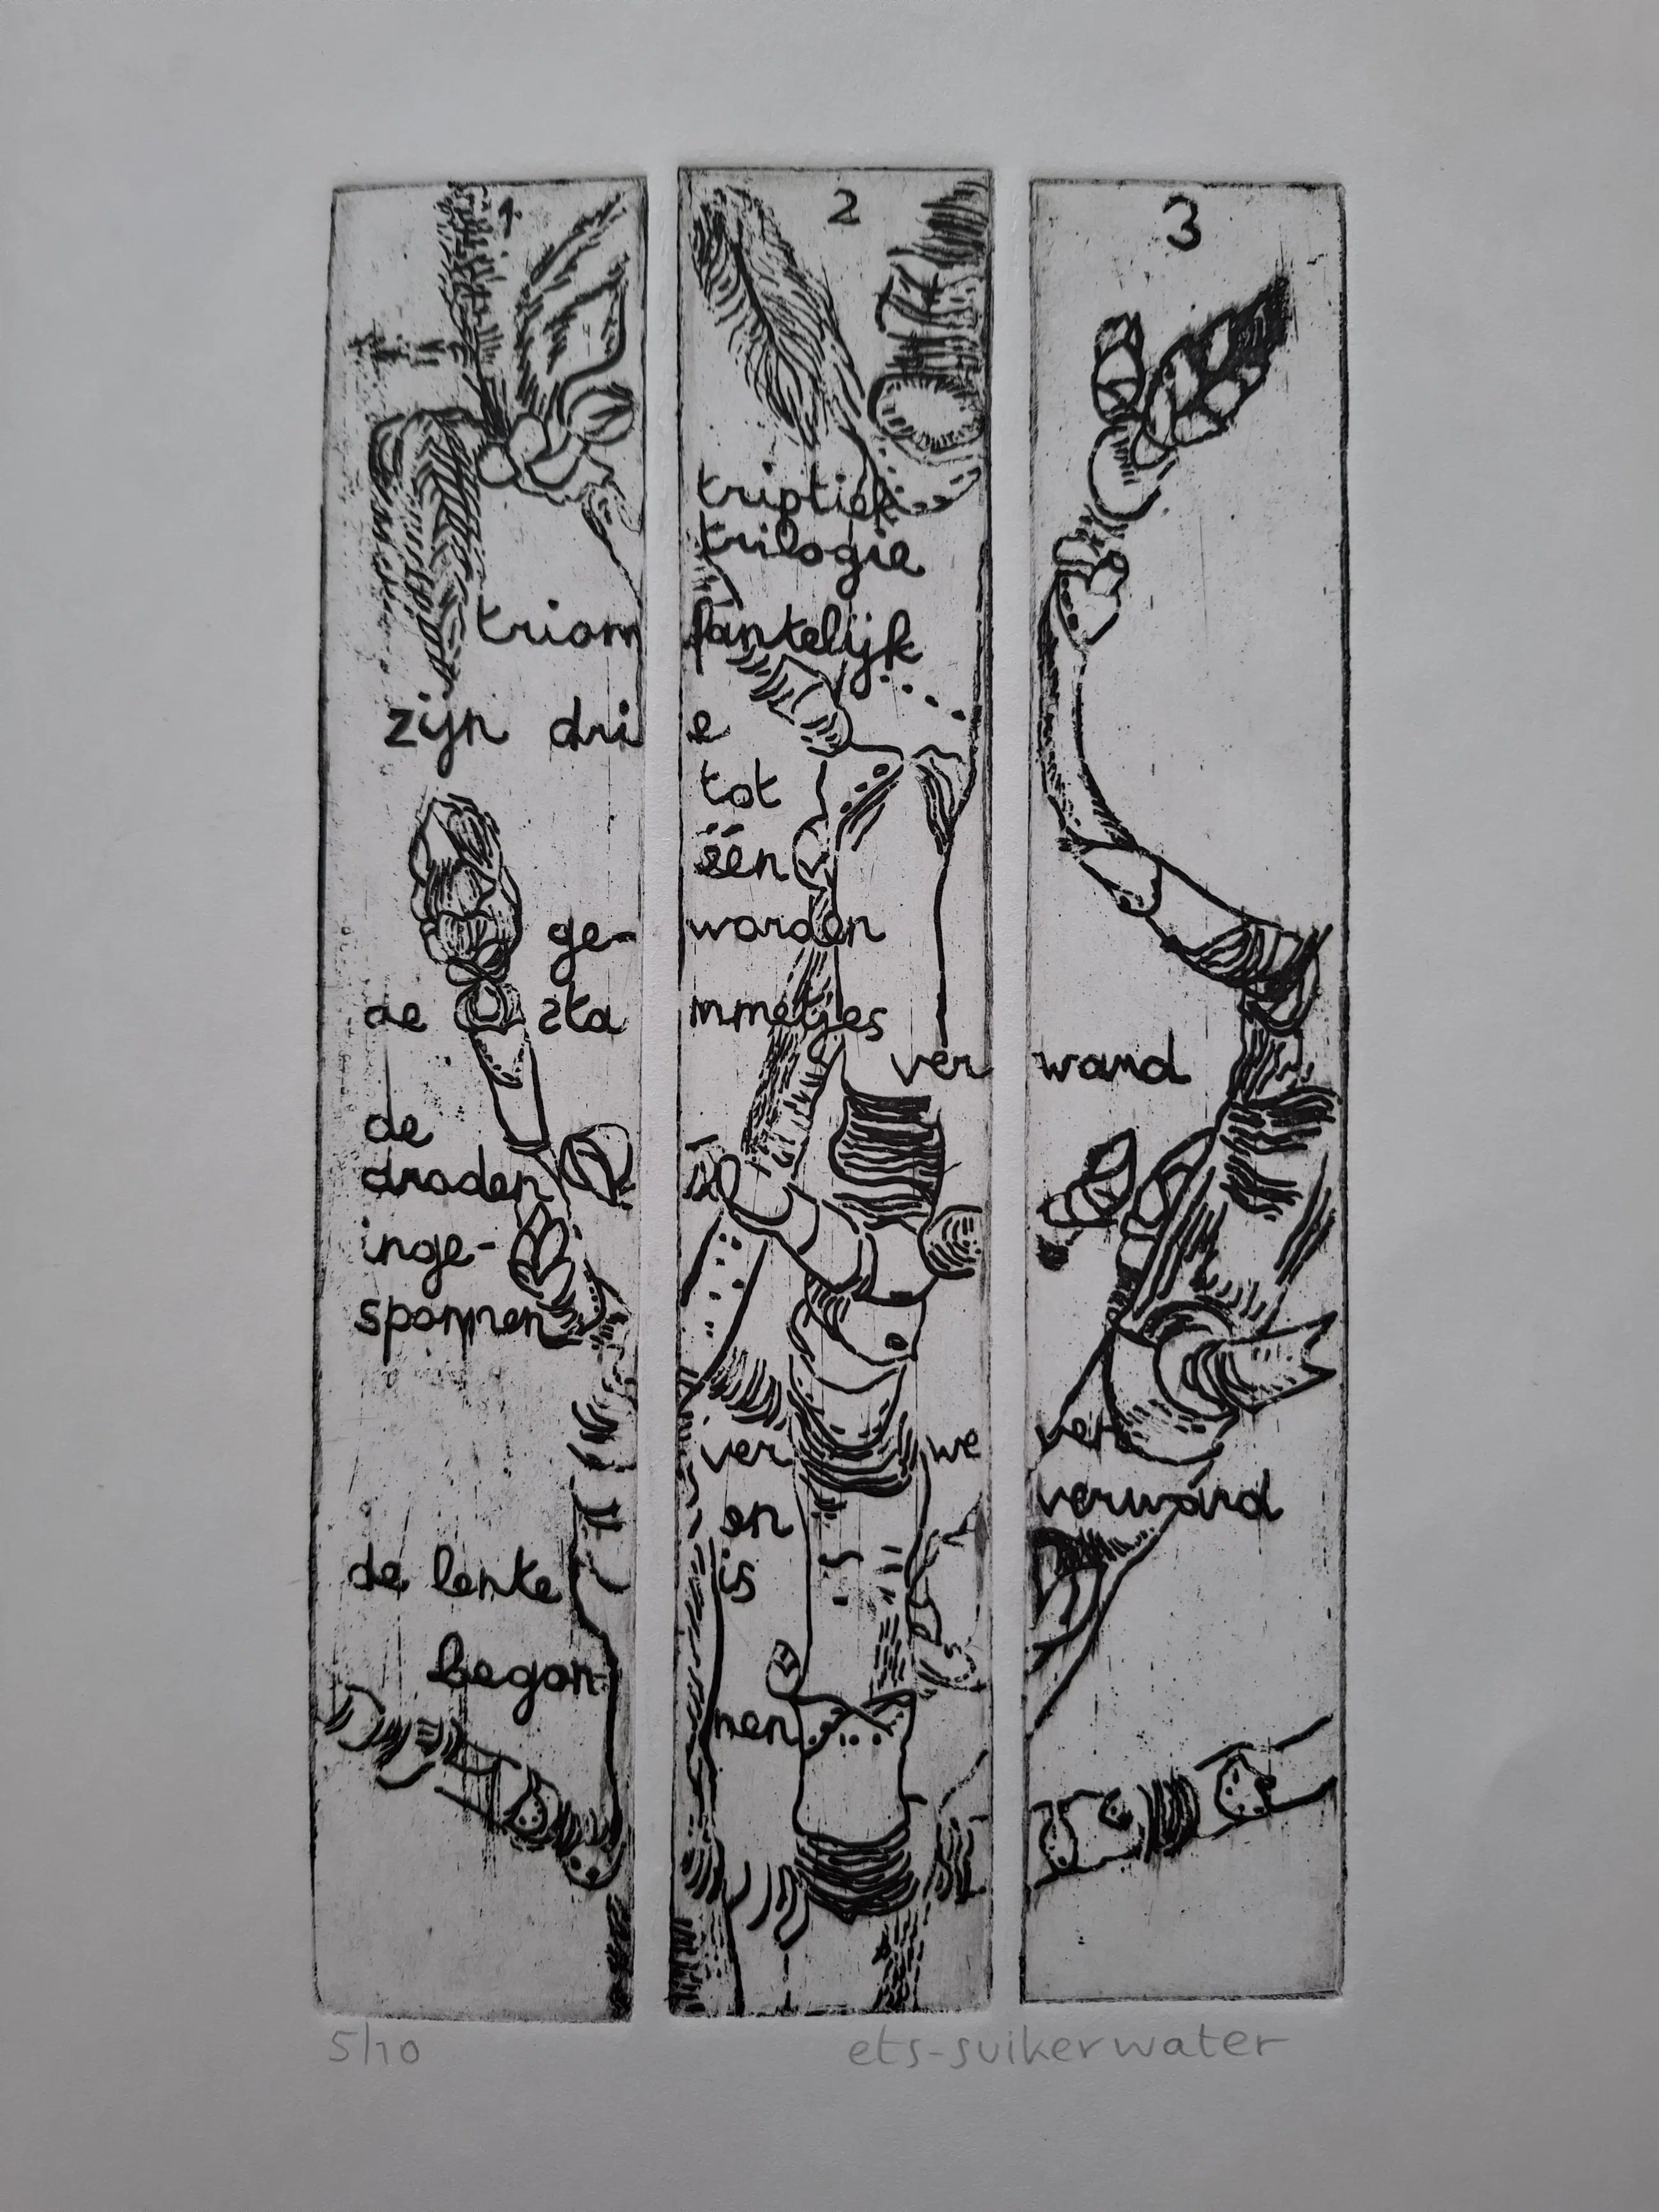 1 2 3
triptiek
trilogie
triomfantelijk
zijn drie
tot
één
ge-worden
de stammetjes
verwand
de
draden
inge-
sponnen
ver we ver
en verward
is
de lente
begon-
nen
5/10 ets-suikerwater